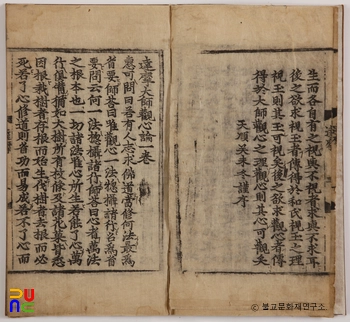 生而各自有之視與不視者求與不求耳
後之欲求視玉者傳得於和氏視玉之理
視玉則其玉可視矣後之欲求觀心者傳
得於大師觀心之理觀心則其心可觀矣
天順癸未冬謹序
達磨大師觀心論一卷
惠可問曰若有人志求佛道當修何法最爲
省要師答曰唯觀心一法摠攝諸行名爲省
要問云何一法摠攝諸行師答曰心者萬法
之根本也一切諸法唯心所生若能了心萬
行俱備猶如大樹所有枝條及諸花菓皆悉
因根栽樹者存根而始生伐樹者去根而必
死若了心修道則省功而易成若不了心而
© 불교문화재연구소.